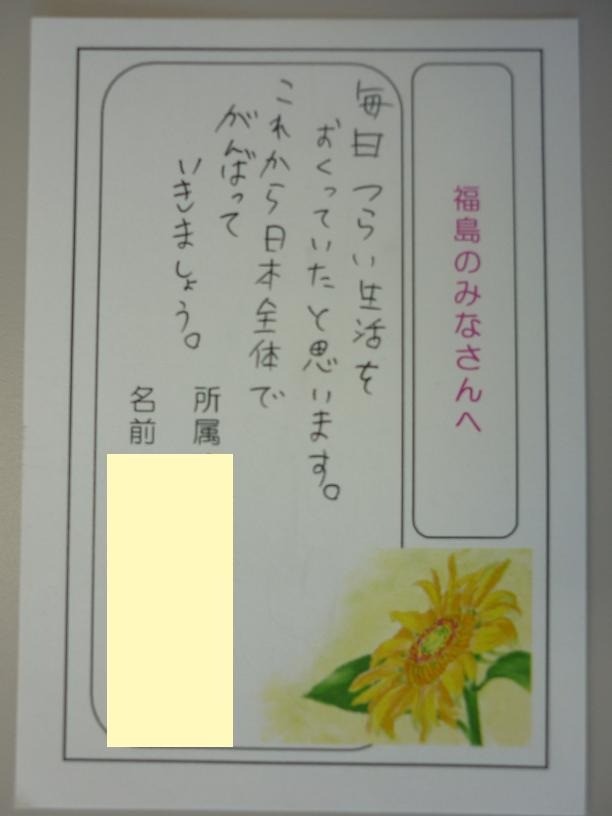 福島のみなさんへ
毎日つらい生活を
おくっていたと思います。
これから日本全体で
がんばって
いきましょう。
所属
名前